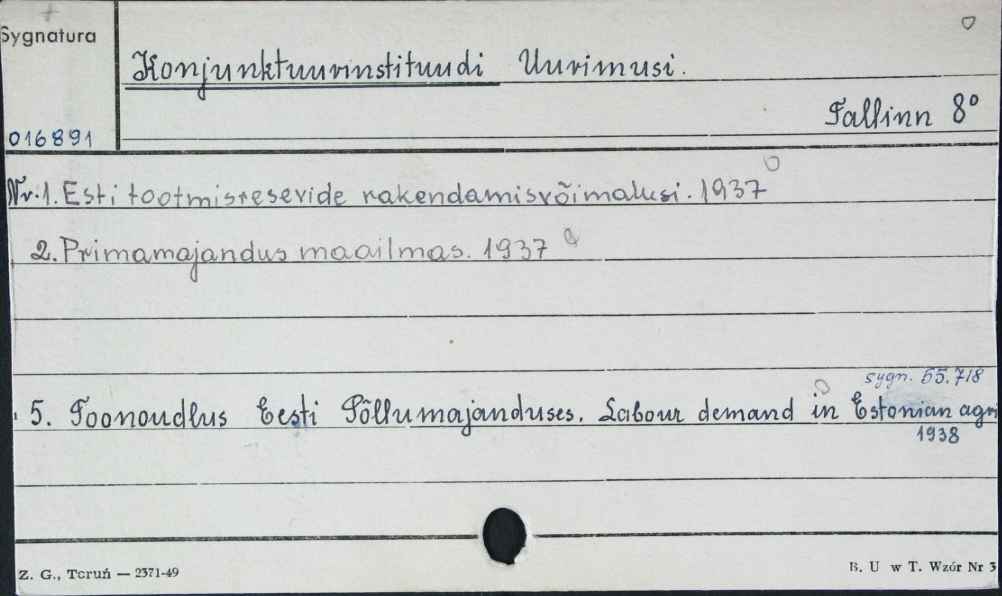 Sygnatura
Konjunktuurinstituudi Uurimusi.
Tallinn 8°
016891
Nr. 1. Esti tootmisresevide rakendamisvõimalusi. 1937
2. Primamajandus maailmas. 1937
sygn. 55.718
5. Toonoudlus Eesti Põllumajanduses. Labour demand in Estonian agr
1938
Z. G., Toruń — 2371-49
B. U w T. Wzór Nr 3